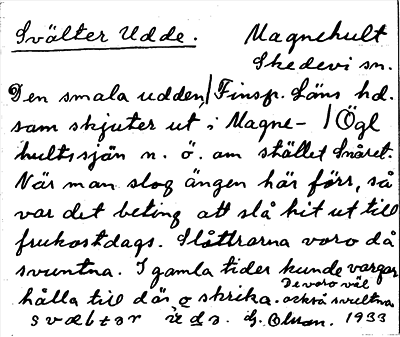 Svälter Udde. Magnehult
Skedevi sn.
Den smala udden, / Finsp. Läns hd.
som skjuter ut i Magne- / Ögl
hultssjön n. ö. om stället Snåret.
När man slog ängen här förr, så
var det beting att slå hit ut till
frukostdags. Slåttrarna voro då
svuntna. I gamla tider kunde vargar
De voro väl
hålla till där o skrika. också svultna
svæltər ɯdə. G. Olsson. 1933